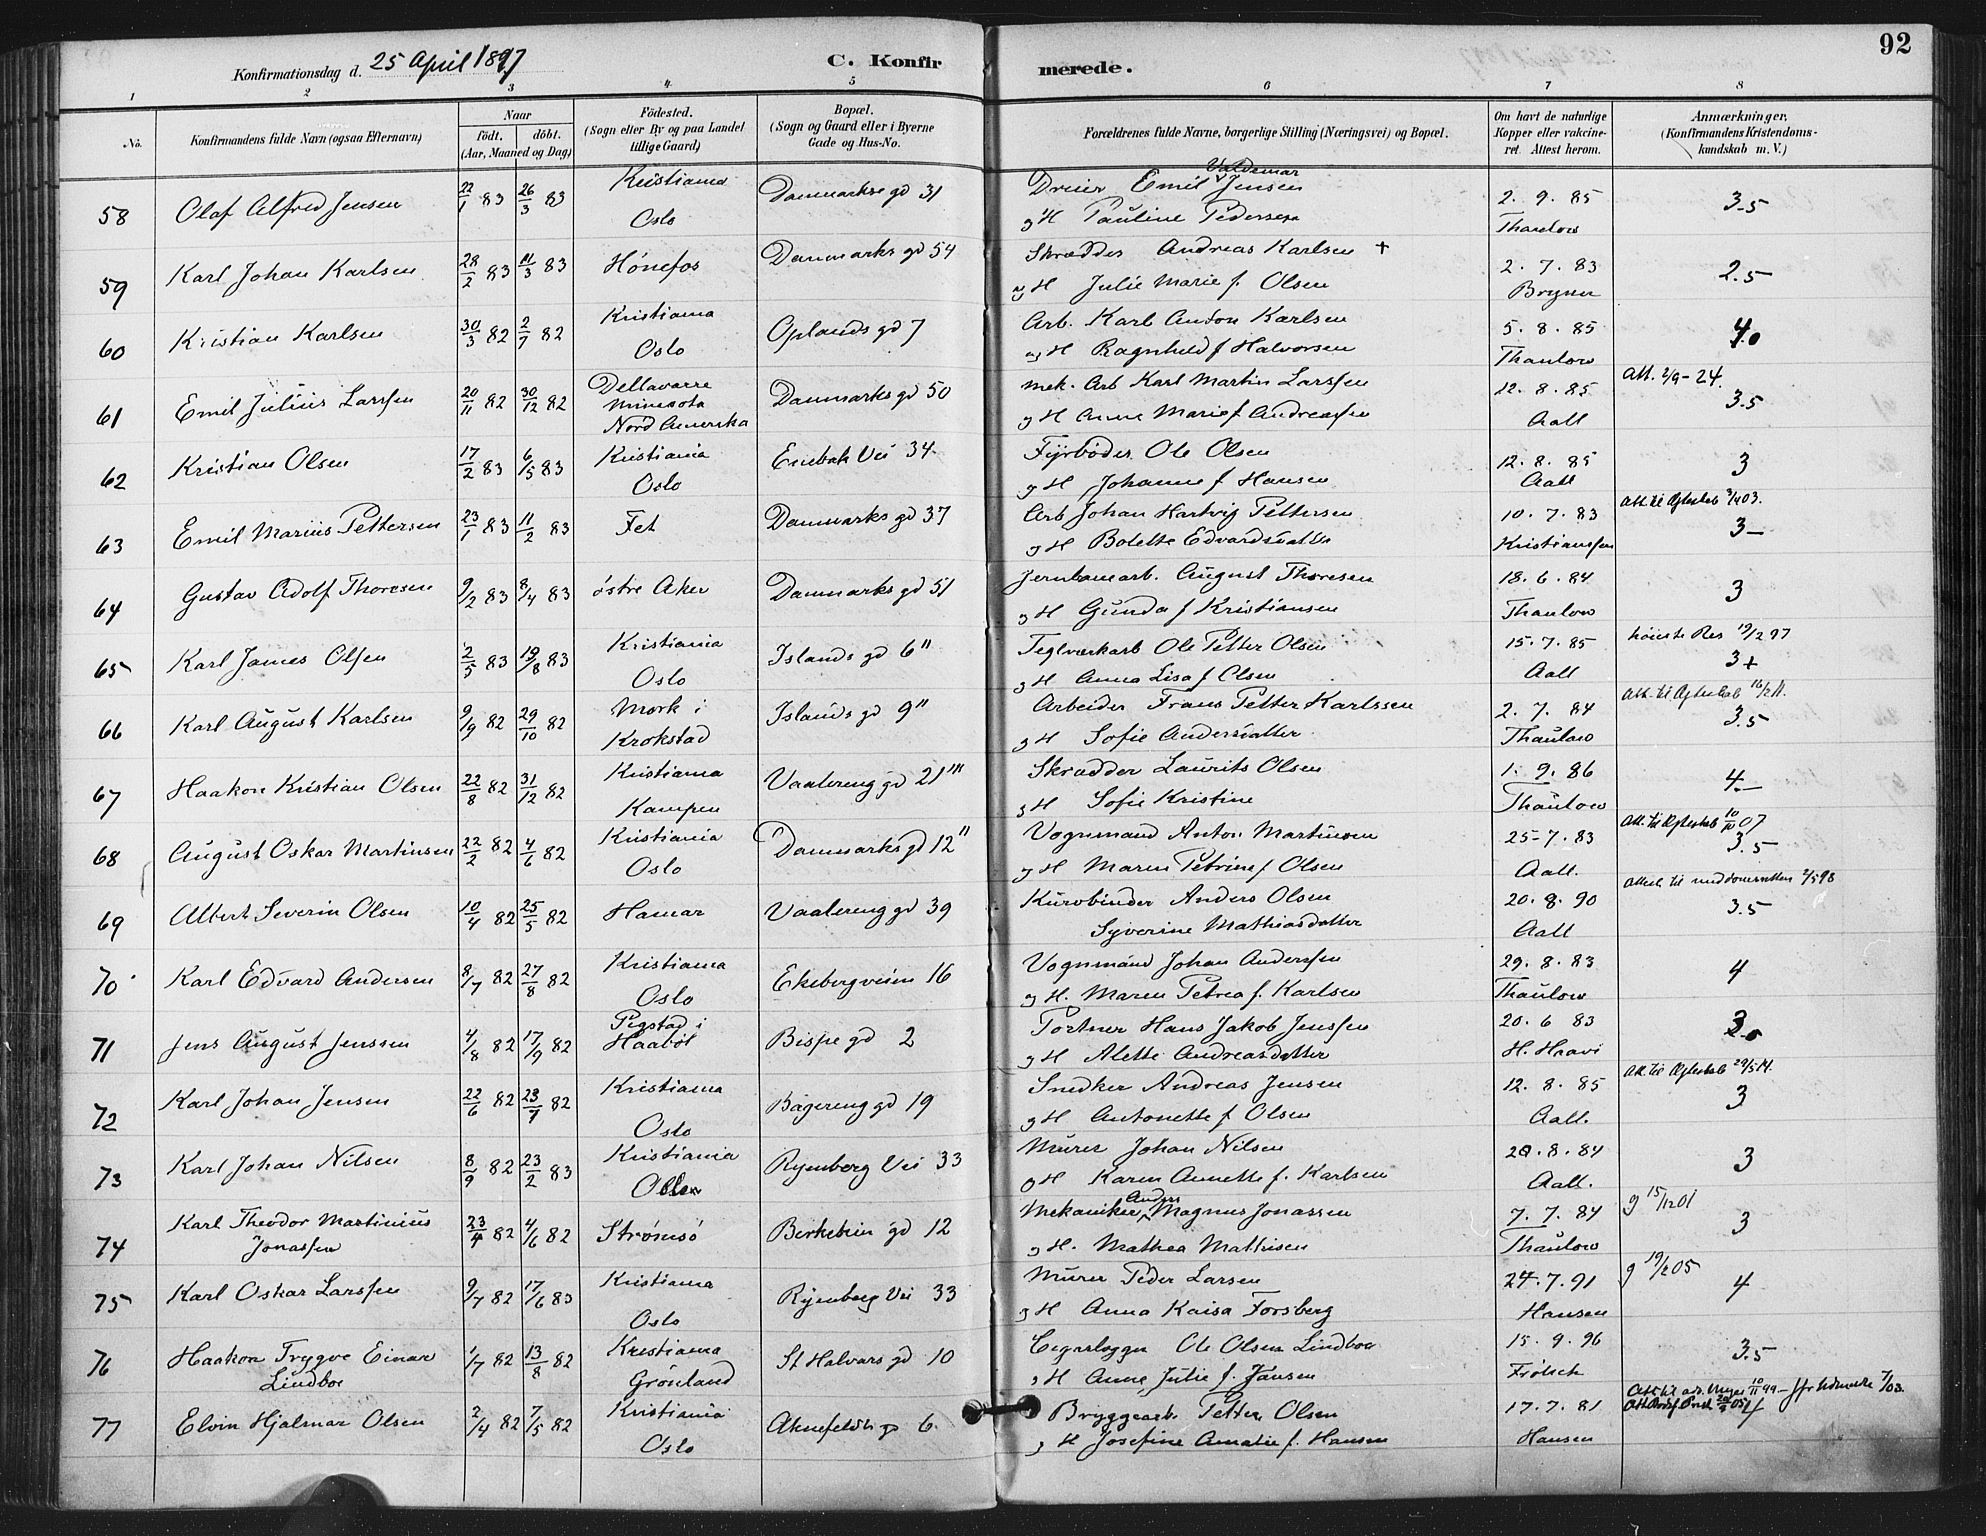 92
Konfirmationsdag d. 25 April 1897 C. Konfirmerede.
1 2 3 4 5 6 7 8
No. Konfirmandens fulde Navn (ogsaa Efternavn) Naar födt. döbt. (Aar, Maaned og Dag) Födested. (Sogn eller By og paa Landet tillige Gaard) Bopæl. (Sogn og Gaard eller i Byerne Gade og Hus-No. Forældrenes fulde Navne, borgerlige Stilling (Næringsvei) og Bopæl. Om havt de naturlige Kopper eller vakcineret. Attest herom. Anmærkninger, (Konfirmandens Kristendomskundskab m. V.)
58 Olaf Alfred Jensen 22/1 83 26/3 83 Kristiania Danmarks gd 31 Dreier Emil Valdemar Jensen 2. 9. 85 3.5
Oslo g H Pauline Pedersen Thaulow
59 Karl Johan Karlsen 28/2 83 11/3 83 Hönefos Danmarks gd 54 Skrædder Andreas Karlsen + 2. 7. 83 2.5
g H Julie Marie f. Olsen Brynn
60 Kristian Karlsen 30/3 82 2/7 82 Kristiania Oplands gd 7 Arb. Karl Anton Karlsen 5. 8. 85 4.0
Oslo og H Ragnhild f Halvorsen Thaulow
61 Emil Julius Larssen 20/11 82 30/12 82 Dellavarre Danmarks gd 50 mek. Arb Karl Martin Larssen 12. 8. 85 Att. 2/9-24.
Minesota
Nord Amerika g H Anne Marie f. Andreassen Aall 3.5
62 Kristian Olsen 17/2 83 6/5 83 Kristiania Enebak Vei 34 Fyrböder Ole Olsen 12. 8. 85 3
Oslo g H Johanne f Hansen Aall
63 Emil Marius Pettersen 23/1 83 11/2 83 Fet Danmarks gd 37 Arb Johan Hartvig Pettersen 10. 7. 83 Att. til Ægteskab 03.
g H Bolette Edvardsdatter Kristianssen 3-
64 Gustav Adolf Thoresen 9/2 83 8/4 83 östre Aker Danmarks gd 51 Jernbanearb. August Thoresen 18. 6. 84 3
g H Gunda f Kristiansen Thaulow
65 Karl James Olsen 2/5 83 19/8 83 Kristiania Islands gd 6" Teglværkarb Ole Petter Olsen 15. 7. 85 Res 19/2 97
Oslo g H Anna Lisa f Olsen Aall 3+
66 Karl August Karlsen 9/9 82 29/10 82 Mork i Islands gd 9" Arbeider Frans Petter Karlssen 2. 7. 84 Att. til Ægteskab 16/2 11.
Krokstad g H Sofie Andersdatter Thaulow 3.5
67 Haakon Kristian Olsen 22/8 82 31/12 82 Kristiania Vaalereng gd 21"' Skrædder Laurits Olsen 1. 9. 86 4.-
Kampen g H Sofie Kristine Thaulow
68 August Oskar Martinsen 22/2 82 4/6 82 Kristiania Danmarks gd 12" Vognmand Anton Martinsen 25-7. 83 Att. til Ægteskab 10/10 07
Oslo g H Maren Petrine f Olsen Aall. 3.5
69 Albert Severin Olsen 10/4 82 25/5 82 Hamar Vaalereng gd 39 Kurvbinder Anders Olsen 20. 8. 90 Attest til meddomsretten 2/5 98
Syverine Mathiasdatter Aall 3.5
70 Karl Edvard Andersen 8/7 82 27/8 82 Kristiania Ekebergveien 16 Vognmand Johan Anderssen 29. 8. 83 4
Oslo g H. Maren Petrea f. Karlsen Thaulow
71 Jens August Jenssen 4/8 82 17/9 82 Pegstad i Bispe gd 2 Portner Hans Jakob Jenssen 20. 6 83 3.0
Haaböl g H Alette Andreasdatter H. Haavi
72 Karl Johan Jensen 22/6 82 23/7 82 Kristiania Bøgereng gd 19 Snedker Andreas Jensen 12. 8. 85 Att. til Ægteskab 29/5 14.
Oslo g H Antonette f. Olsen Aall. 3
73 Karl Johan Nilsen 8/9 82 23/2 83 Kristiania Ryenberg Vei 33 Murer Johan Nilsen 20. 8. 84 3
Oslo g H Karen Annette f. Karlsen Aall.
74 Karl Theodor Martinius 23/4 82 4/6 82 Strömsö Birkebein gd 12 Mekaniker Anders Magnus Jonassen 7. 7. 84 g 15/12 01
Jonassen g H. Mathea Mathisen Thaulow 3
75 Karl Oskar Larssen 9/7 82 17/6 83 Kristiania Ryenberg Vei 33 Murer Peder Larsen 24. 7. 91 g 19/2 05
Oslo g H Anna Kaisa Forsberg Hansen 4
76 Haakon Trygve Einar 1/7 82 13/8 82 Kristiania St Halvars gd 10 Ole Olsen Lindboe 15. 9. 96 3.5
Lindboe Grönland g H Anne Julie f. Jansen Frölich
77 Elvin Hjalmar Olsen 2/4 82 7/5 82 Kristiania Aknefeldts gd 6. Bryggearb. Petter Olsen 17. 7. 81
Oslo g H Josefine Amalie f. Hansen Hansen